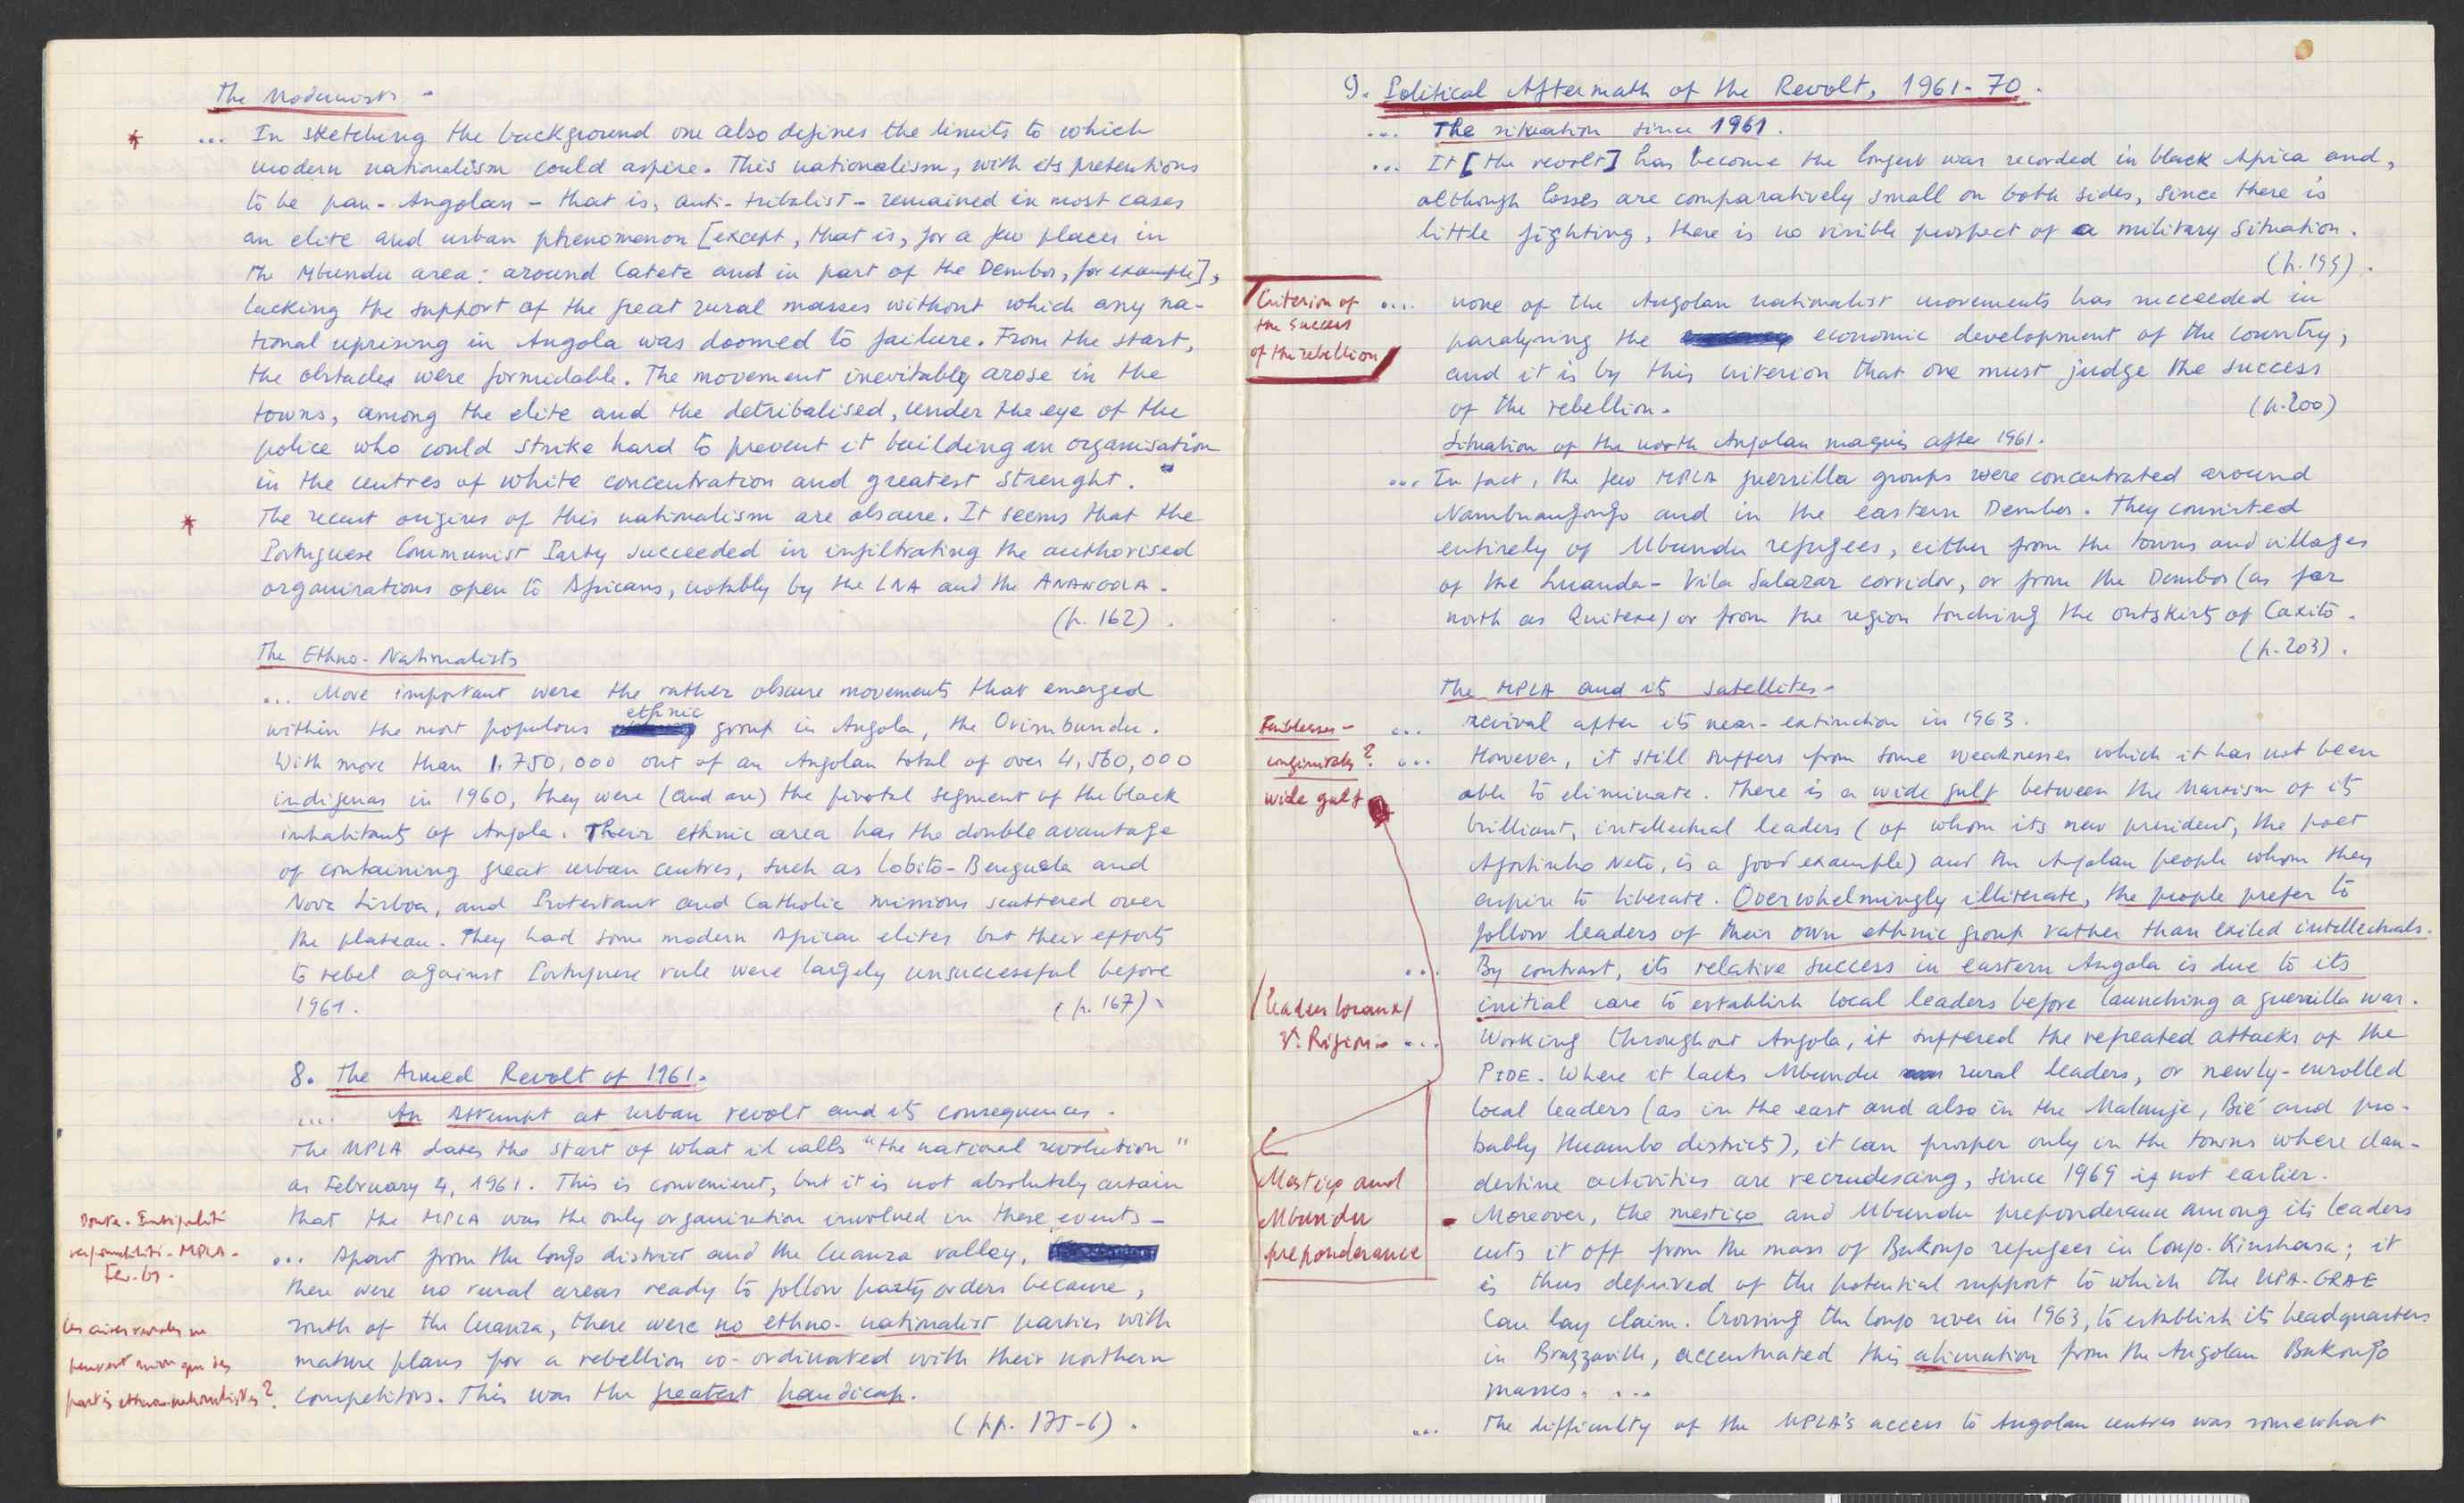 The Modernists -
* ... In sketching the background one also defines the limits to which
modern nationalism could aspire. This nationalism, with its pretentions
to be pan-Angolan - that is, anti-tribalist - remained in most cases
an elite and urban phenomenon [except, that is, for a few places in
the Mbundu area: around Catete and in part of the Dembos, for example],
lacking the support of the great rural masses without which any na-
tional uprising in Angola was doomed to failure. From the start,
the obstacles were formidable. The movement inevitably arose in the
towns, among the elite and the detribalised, under the eye of the
police who could strike hard to prevent it building an organisation
in the centres of white concentration and greatest strenght.
* The recent origins of this nationalism are obscure. It seems that the
Portuguese Communist Party succeeded in infiltrating the authorised
organisations open to Africans, notably by the LNA and the ANANGOLA.
(p. 162).
The Ethno-Nationalists
... More important were the rather obscure movements that emerged
within the most populous ethnic group in Angola, the Ovimbundu.
With more than 1,750,000 out of an Angolan total of over 4,560,000
indigenas in 1960, they were (and are) the pivotal segment of the black
inhabitants of Angola. Their ethnic area has the double avantage
of containing great urban centres, such as Lobito-Benguela and
Nova Lisboa, and Protestant and Catholic missions scattered over
the plateau. They had some modern African elites but their efforts
to rebel against Portuguese rule were largely unsuccessful before
1961. (p. 167).
8. The Armed Revolt of 1961.
... An Attempt at urban revolt and its consequences.
The MPLA dates the start of what it calls "the national revolution"
as February 4, 1961. This is convenient, but it is not absolutely certain
that the MPLA was the only organisation involved in these events -
Doute.
responsabilité - MPLA -
Fev. 61 -
... Apart from the Congo district and the Cuanza valley,
there were no rural areas ready to follow party orders because,
south of the Cuanza, there were no ethno-nationalist parties with
mature plans for a rebellion co-ordinated with their northern
competitors. This was the greatest handicap.
Les aires rurales ne
peuvent suivre que des
partis ethno-nationalistes?
(pp. 175-6).
9. Political Aftermath of the Revolt, 1961-70.
... The situation since 1961.
... It [the revolt] has become the longest war recorded in black Africa and,
although losses are comparatively small on both sides, since there is
little fighting, there is no visible prospect of a military situation.
(p. 199).
Criterion of
the success
of the rebellion
.... none of the Angolan nationalist movements has succeeded in
paralysing the economic development of the country,
and it is by this criterion that one must judge the success
of the rebellion. (p. 200)
Situation of the north Angolan maquis after 1961.
... In fact, the few MPLA guerrilla groups were concentrated around
Nambuangongo and in the eastern Dembos. They consisted
entirely of Mbundu refugees, either from the towns and villages
of the Luanda-Vila Salazar corridor, or from the Dembos (as far
north as Quitexe) or from the region touching the outskirts of Caxito.
(p. 203).
The MPLA and its satellites -
... revival after its near-extinction in 1963.
Faiblesses -
congénitales?
wide gulf
... However, it still suffers from some weaknesses which it has not been
able to eliminate. There is a wide gulf between the Marxism of its
brilliant, intellectual leaders (of whom its new president, the poet
Agostinho Neto, is a good example) and the Angolan people whom they
aspire to liberate. Overwhelmingly illiterate, the people prefer to
follow leaders of their own ethnic group rather than exiled intellectuals.
... By contrast, its relative success in eastern Angola is due to its
initial care to establish local leaders before launching a guerrilla war.
(leaders locaux)
3e. Région -
... Working throughout Angola, it suffered the repeated attacks of the
PIDE. Where it lacks Mbundu rural leaders, or newly-enrolled
local leaders (as in the east and also in the Malanje, Bié and pro-
bably Huambo districts), it can prosper only in the towns where clan-
destine activities are recrudescing, since 1969 if not earlier.
Mestiço and
Mbundu
preponderance
- Moreover, the mestiço and Mbundu preponderance among its leaders
cuts it off from the mass of Bakongo refugees in Congo-Kinshasa; it
is thus deprived of the potential support to which the UPA-GRAE
can lay claim. Crossing the Congo river in 1963, to establish its headquarters
in Brazzaville, accentuated this alienation from the Angolan Bakongo
masses. ...
... The difficulty of the MPLA's access to Angolan centres was somewhat